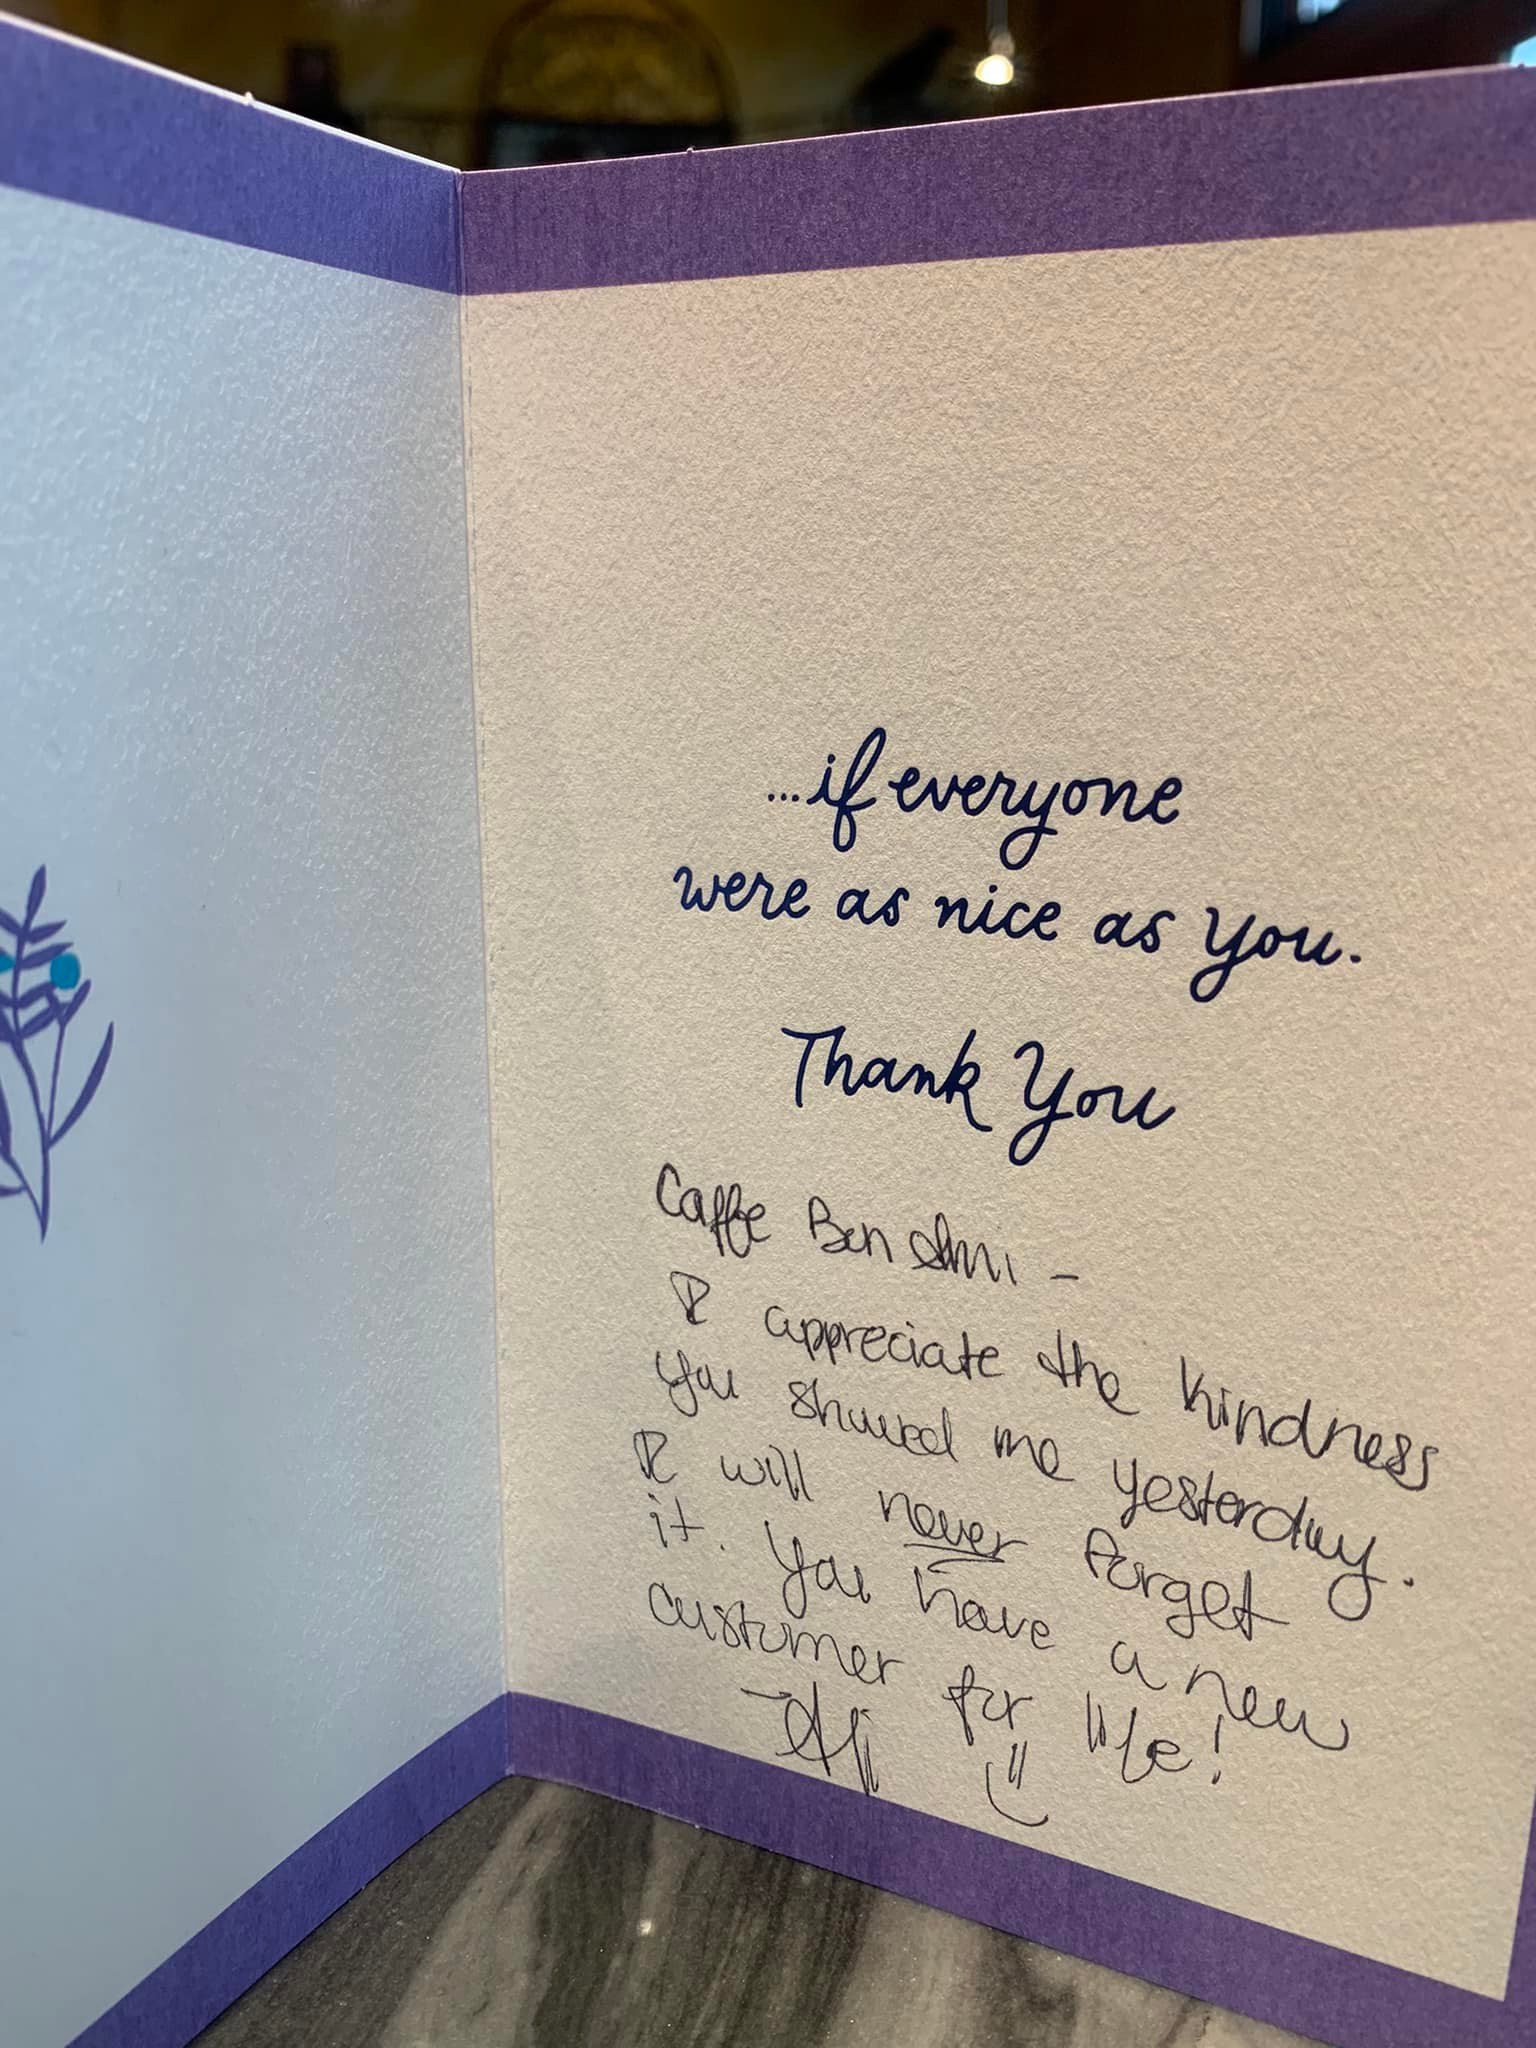 ...if everyone
were as nice as you.
Thank You
Caffe Ben Ami -
I appreciate the kindness
you showed me yesterday.
I will never forget
it. You have a new
customer for life!